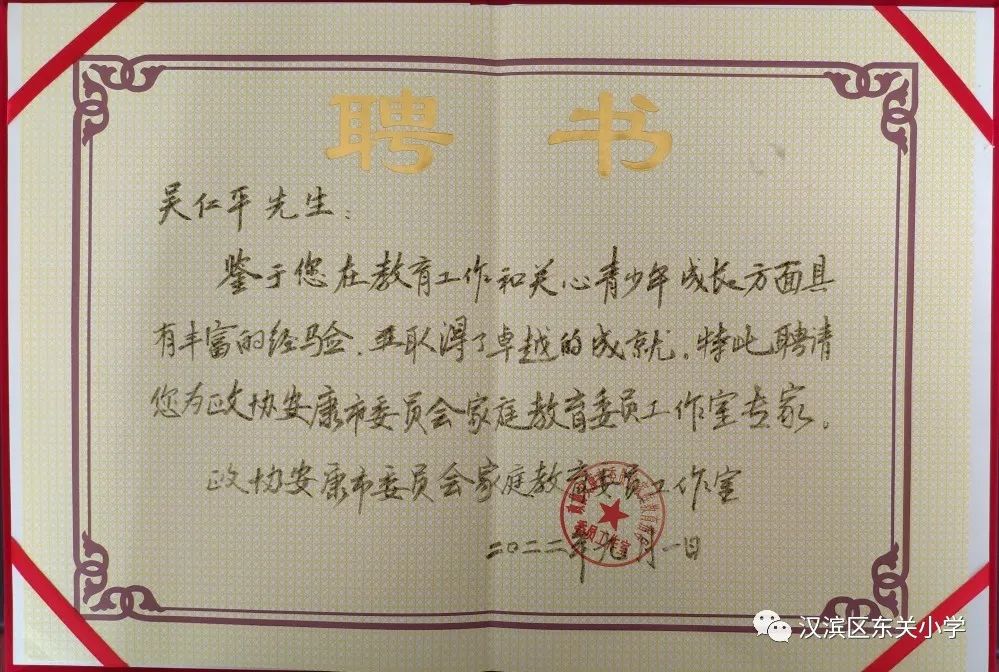 聘书
吴仁平先生：
鉴于您在教育工作和关心青少年成长方面具
有丰富的经验，并取得了卓越的成就，特此聘请
您为政协安康市委员会家庭教育委员工作室专家。
政协安康市委员会家庭教育委员工作室
委员工作室
二〇二二年九月一日
汉滨区东关小学